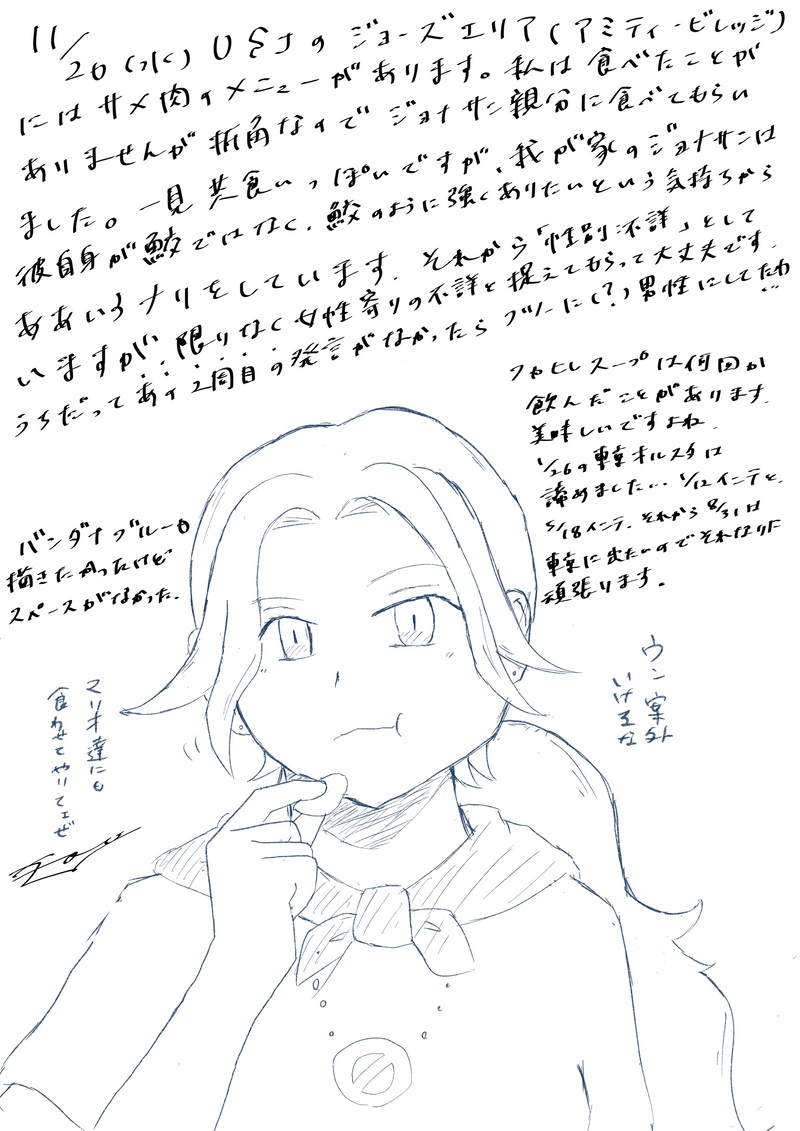 11/26(水) USJのジョーズエリア(アミティ・ビレッジ)
にはサメ肉のメニューがあります。私は食べたことが
ありませんが折角なのでジョナサン親分に食べてもらい
ました。一見共食いっぽいですが、我が家のジョナサンは
彼自身が鮫ではなく、鮫のように強くありたいという気持ちから
ああいうナリをしています。それから「性別:不詳」として
いますが、限りなく女性寄りの不詳と捉えてもらって大丈夫です。
うちだってあの2周目の発言がなかったらフツーに(?)男性にしてたわ
フカヒレスープは何回か
飲んだことがあります。
美味しいですよね。
1/26の東京オルスタは
諦めました… 1/12インテと、
5/18インテ、それから8/31は
東京に出たいのでそれなりに
頑張ります。
バンダナブルーも
描きたかったけど
スペースがなかった。
ウン案外
いけるな
マリオ達にも
食わせてやりてェぜ